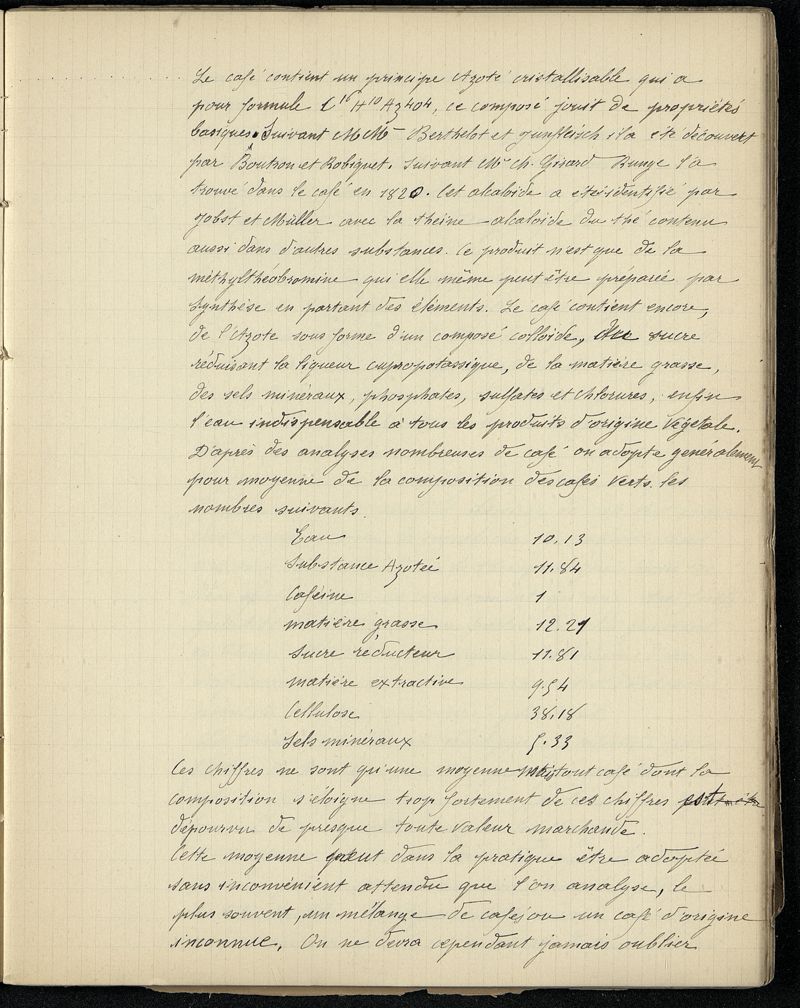 Le café contient un principe Azoté cristallisable qui a
pour formule C¹⁶H¹⁰Az4O4, ce composé jouit de propriétés
basiques. Suivant MM Berthelot et Junfleisch il a été découvert
par Boutron et Robiquet. Suivant Mr Ch. Girard Runge l'a
trouvé dans le café en 1820. Cet alcaloïde a été identifié par
Jobst et Müller avec la theine alcaloïde du thé contenu
aussi dans d'autres substances. Ce produit n'est que de la
méthyltheobromine qui elle même peut être préparée par
synthèse en partant des éléments. Le café contient encore,
de l'Azote sous forme d'un composé colloïde, du sucre
réduisant la liqueur cupropotassique, de la matière grasse,
des sels minéraux, phosphates, sulfates et chlorures, enfin
l'eau indispensable à tous les produits d'origine végétale.
D'après des analyses nombreuses de café on adopte généralement
pour moyenne de la composition des cafés verts les
nombres suivants
Eau 10.13
Substance Azotée 11.84
Caféine 1
matière grasse 12.21
Sucre réducteur 11.81
matière extractive 9.54
Cellulose 38.18
Sels minéraux 5.33
Ces chiffres ne sont qu'une moyenne mais tout café dont la
composition s'éloigne trop fortement de ces chiffres est
dépourvu de presque toute valeur marchande.
Cette moyenne peut dans la pratique être adoptée
sans inconvénient attendu que l'on analyse, le
plus souvent, un mélange de cafés ou un café d'origine
inconnue. On ne devra cependant jamais oublier